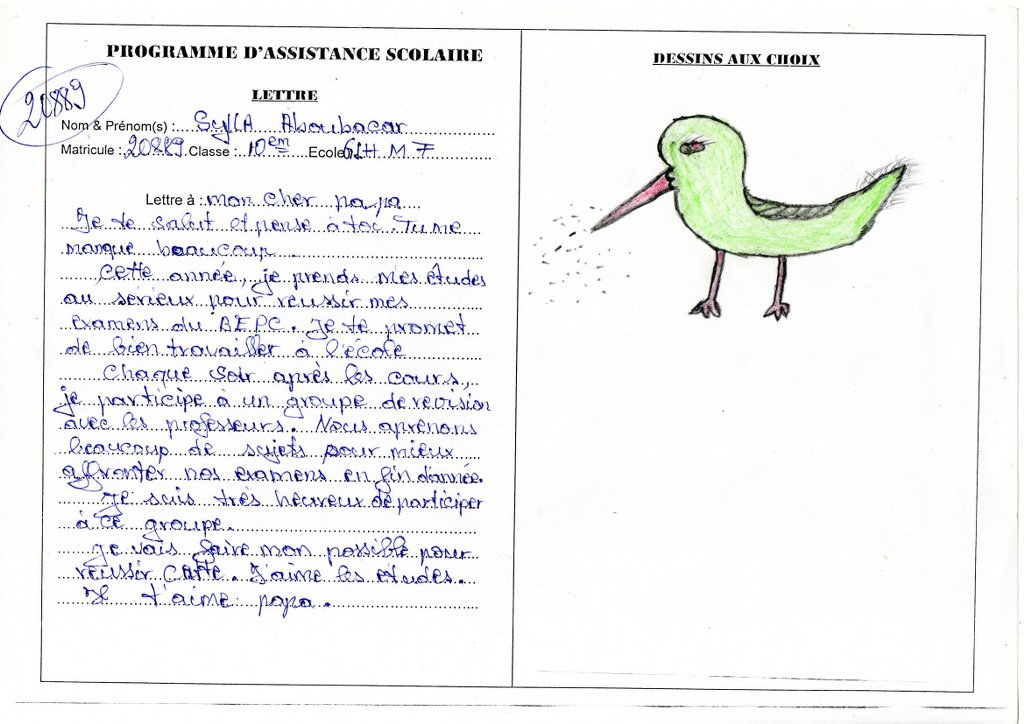 PROGRAMME D'ASSISTANCE SCOLAIRE
20889
LETTRE
Nom & Prénom(s) : Sylla Aboubacar
Matricule : 20889 Classe : 10em Ecole GLH M F
Lettre à : mon cher papa
Je te salut et pense à toi. Tu me
manque beaucoup.
Cette année, je prends mes études
au sérieux pour reussir mes
examens du BEPC. Je te promet
de bien travailler à l'école
Chaque soir après les cours,
je participe à un groupe de revision
avec les professeurs. Nous aprenons
beaucoup de sujets pour mieux
affronter nos examens en fin d'année.
Je suis très heureux de participer
à ce groupe.
Je vais faire mon possible pour
reussir cette. J'aime les etudes.
Je t'aime papa.
DESSINS AUX CHOIX